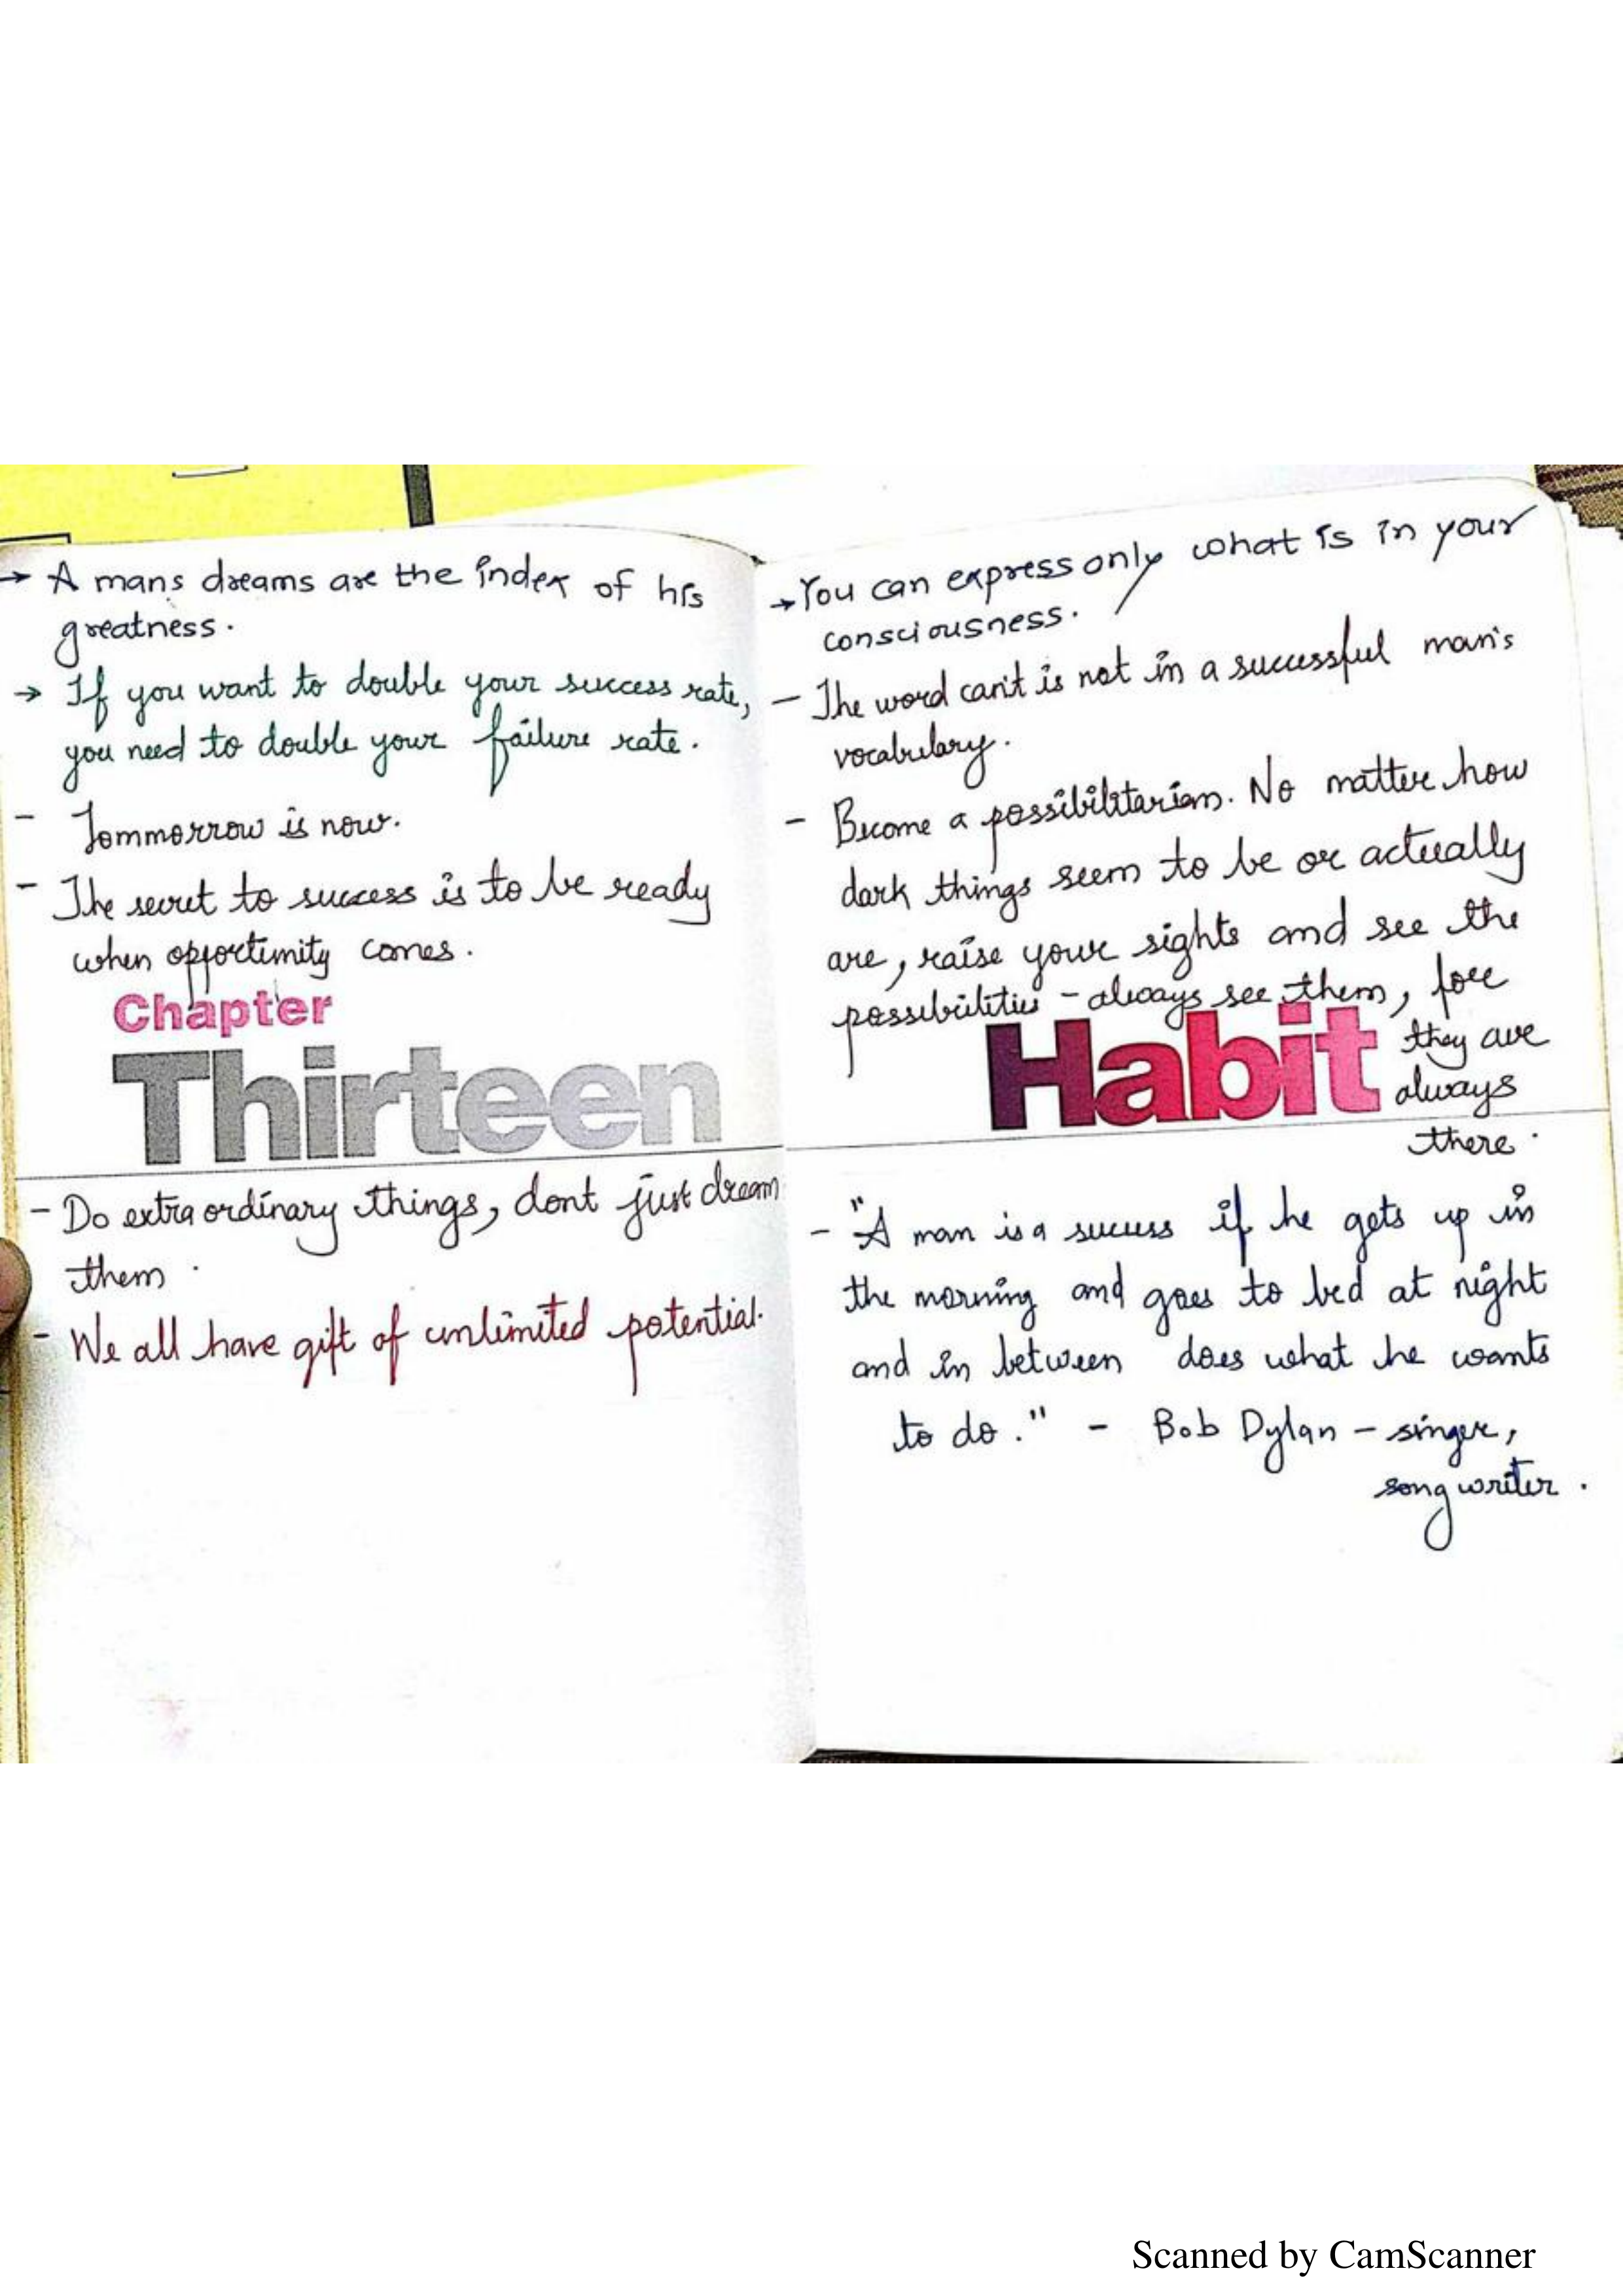 → A mans dreams are the index of his
greatness.
→ If you want to double your success rate,
you need to double your failure rate.
- Tommorrow is now.
- The secret to success is to be ready
when opportunity comes.
Chapter
Thirteen
- Do extra ordinary things, dont just dream
them.
- We all have gift of unlimited potential.
→ You can express only what is in your
consciousness.
- The word can't is not in a successful man's
vocabulary.
- Become a possibilitarian. No matter how
dark things seem to be or actually
are, raise your sights and see the
possibilities - always see them, for
they are
always
there.
Habit
- "A man is a success if he gets up in
the morning and goes to bed at night
and in between does what he wants
to do." - Bob Dylan - singer,
song writer.
Scanned by CamScanner